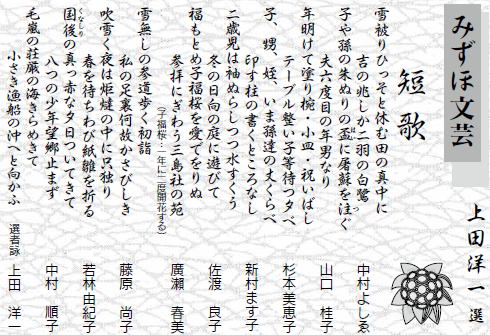 みずほ文芸
上田洋一 選
短歌
雪被りひっそと休む田の真中に
吉の兆しか二羽の白鷺
中村よしゑ
子や孫の朱ぬりの盃に屠蘇を注ぐ
夫六度目の年男なり
山口 桂子
年明けて塗り椀・小皿・祝いばし
テーブル整い子等待つ夕べ
杉本美恵子
子、甥、姪、いま孫達の丈くらべ
印す柱の書くところなし
新村ます子
二歳児は袖ぬらしつつ水すくう
冬の日向の庭に遊びて
佐渡 良子
福もとめ子福桜を愛でをりぬ
参拝にぎわう三島社の苑
(子福桜:一年に二度開花する)
廣瀬 春美
雪無しの参道歩く初詣
私の足裏何故かさびしき
藤原 尚子
吹雪く夜は炬燵の中に只独り
春を待ちわび紙雛を折る
若林由紀子
国後の真っ赤な夕日ついてきて
くなしり
八つの少年望郷止まず
中村 順子
毛嵐の荘厳の海きらめきて
小さき漁船の沖へと向かふ
選者詠 上田 洋一